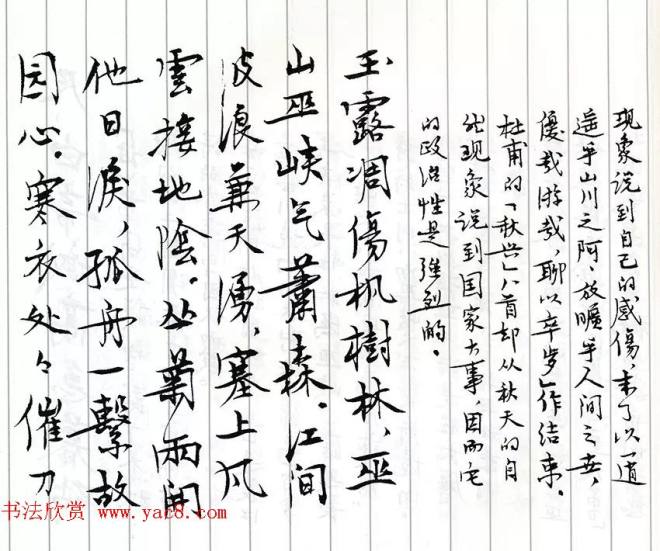 现象说到自己的感傷，末了以「逍
遥乎山川之阿，放曠乎人间之世，
優哉游哉，聊以卒岁」作结束。
杜甫的「秋兴」八首却从秋天的自
然现象说到国家大事，因而它
的政治性是强烈的。
玉露凋傷枫樹林，巫
山巫峡气蕭森。江间
波浪兼天湧，塞上风
雲接地陰。丛菊兩開
他日淚，孤舟一繫故
园心。寒衣处々催刀
书法欣赏 www.yac8.com